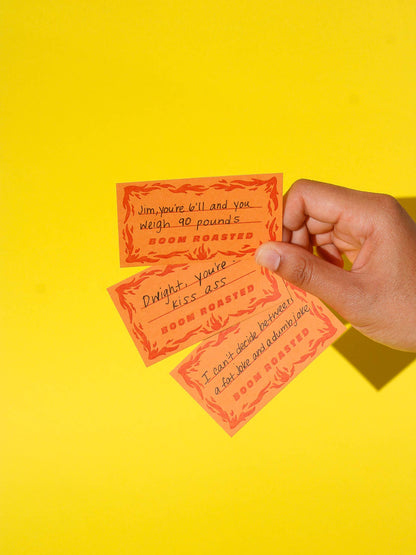 Jim, you're 6'11 and you
weigh 90 pounds
BOOM ROASTED
Dwight, you're
kiss ass
BOOM ROASTED
I can't decide between
a fat joke and a dumb joke
BOOM ROASTED